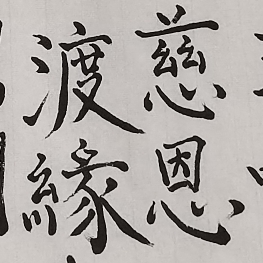 慈恩
渡緣